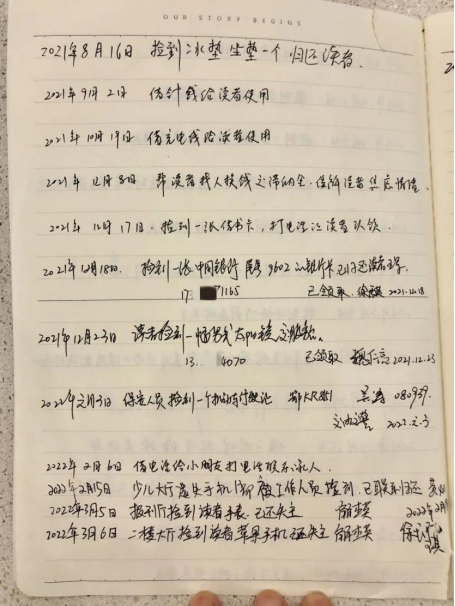 OUR STORY BEGINS
2021年8月16日 捡到冰垫坐垫一个 归还读者.
2021年9月2日 借针线给读者使用
2021年10月19日 借充电线给读者使用
2021年12月8日 帮读者找人换钱交滞纳金,缓解读者焦虑情绪.
2021年12月17日. 捡到一张借书卡,打电话让读者认领
2021年12月18日. 捡到一张中国银行 尾号9602的银行卡已归还读者
17 1165 已领取. 2021.12.18
2021年12月23日 读者捡到一
13. 4070 已领取 2021.12.23
2022年2月3日 保安人员捡到一个 吴涛 080939
2022.2.3
2022年2月6日 借电话给小朋友打电话联系家人.
2022年2月15日 少儿大厅 手机 工作人员捡到,已联系归还
2022年3月5日 报刊厅捡到读者手表,已还失主 2022年2月
2022年3月6日 二楼大厅捡到读者苹果手机已还失主